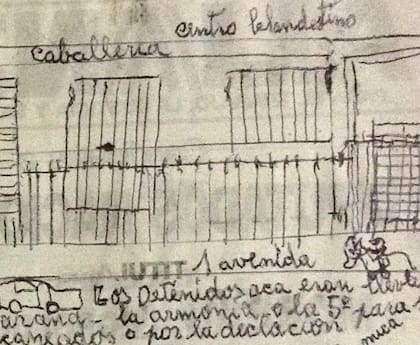 centro clandestino
caballeria
1 avenida
Los Detenidos aca eran lleva
arana - la armonia o la 5º para
careados o por la declacion